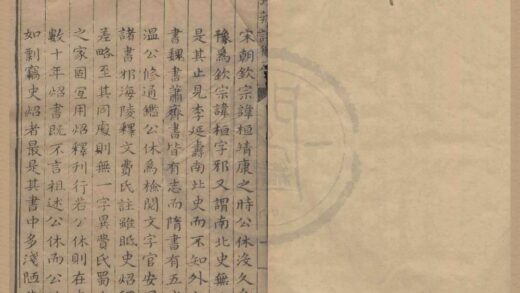 宋朝欽宗諱桓靖康之時公休沒久
豫爲欽宗諱桓字邪又謂南北史無
是其止見李延壽南北史而不知外
書魏書蕭齊書皆有志而隋書有五
温公修通鑑公休爲檢閱文字官安
諸書邪海陵釋文費氏註雖眡史炤
差略至其同處則無一字異費氏蜀
之家固宜用炤釋刊行若公休則在
數十年炤書既不言祖述公休而公
如剽竊史炤者最是其書中多淺陋